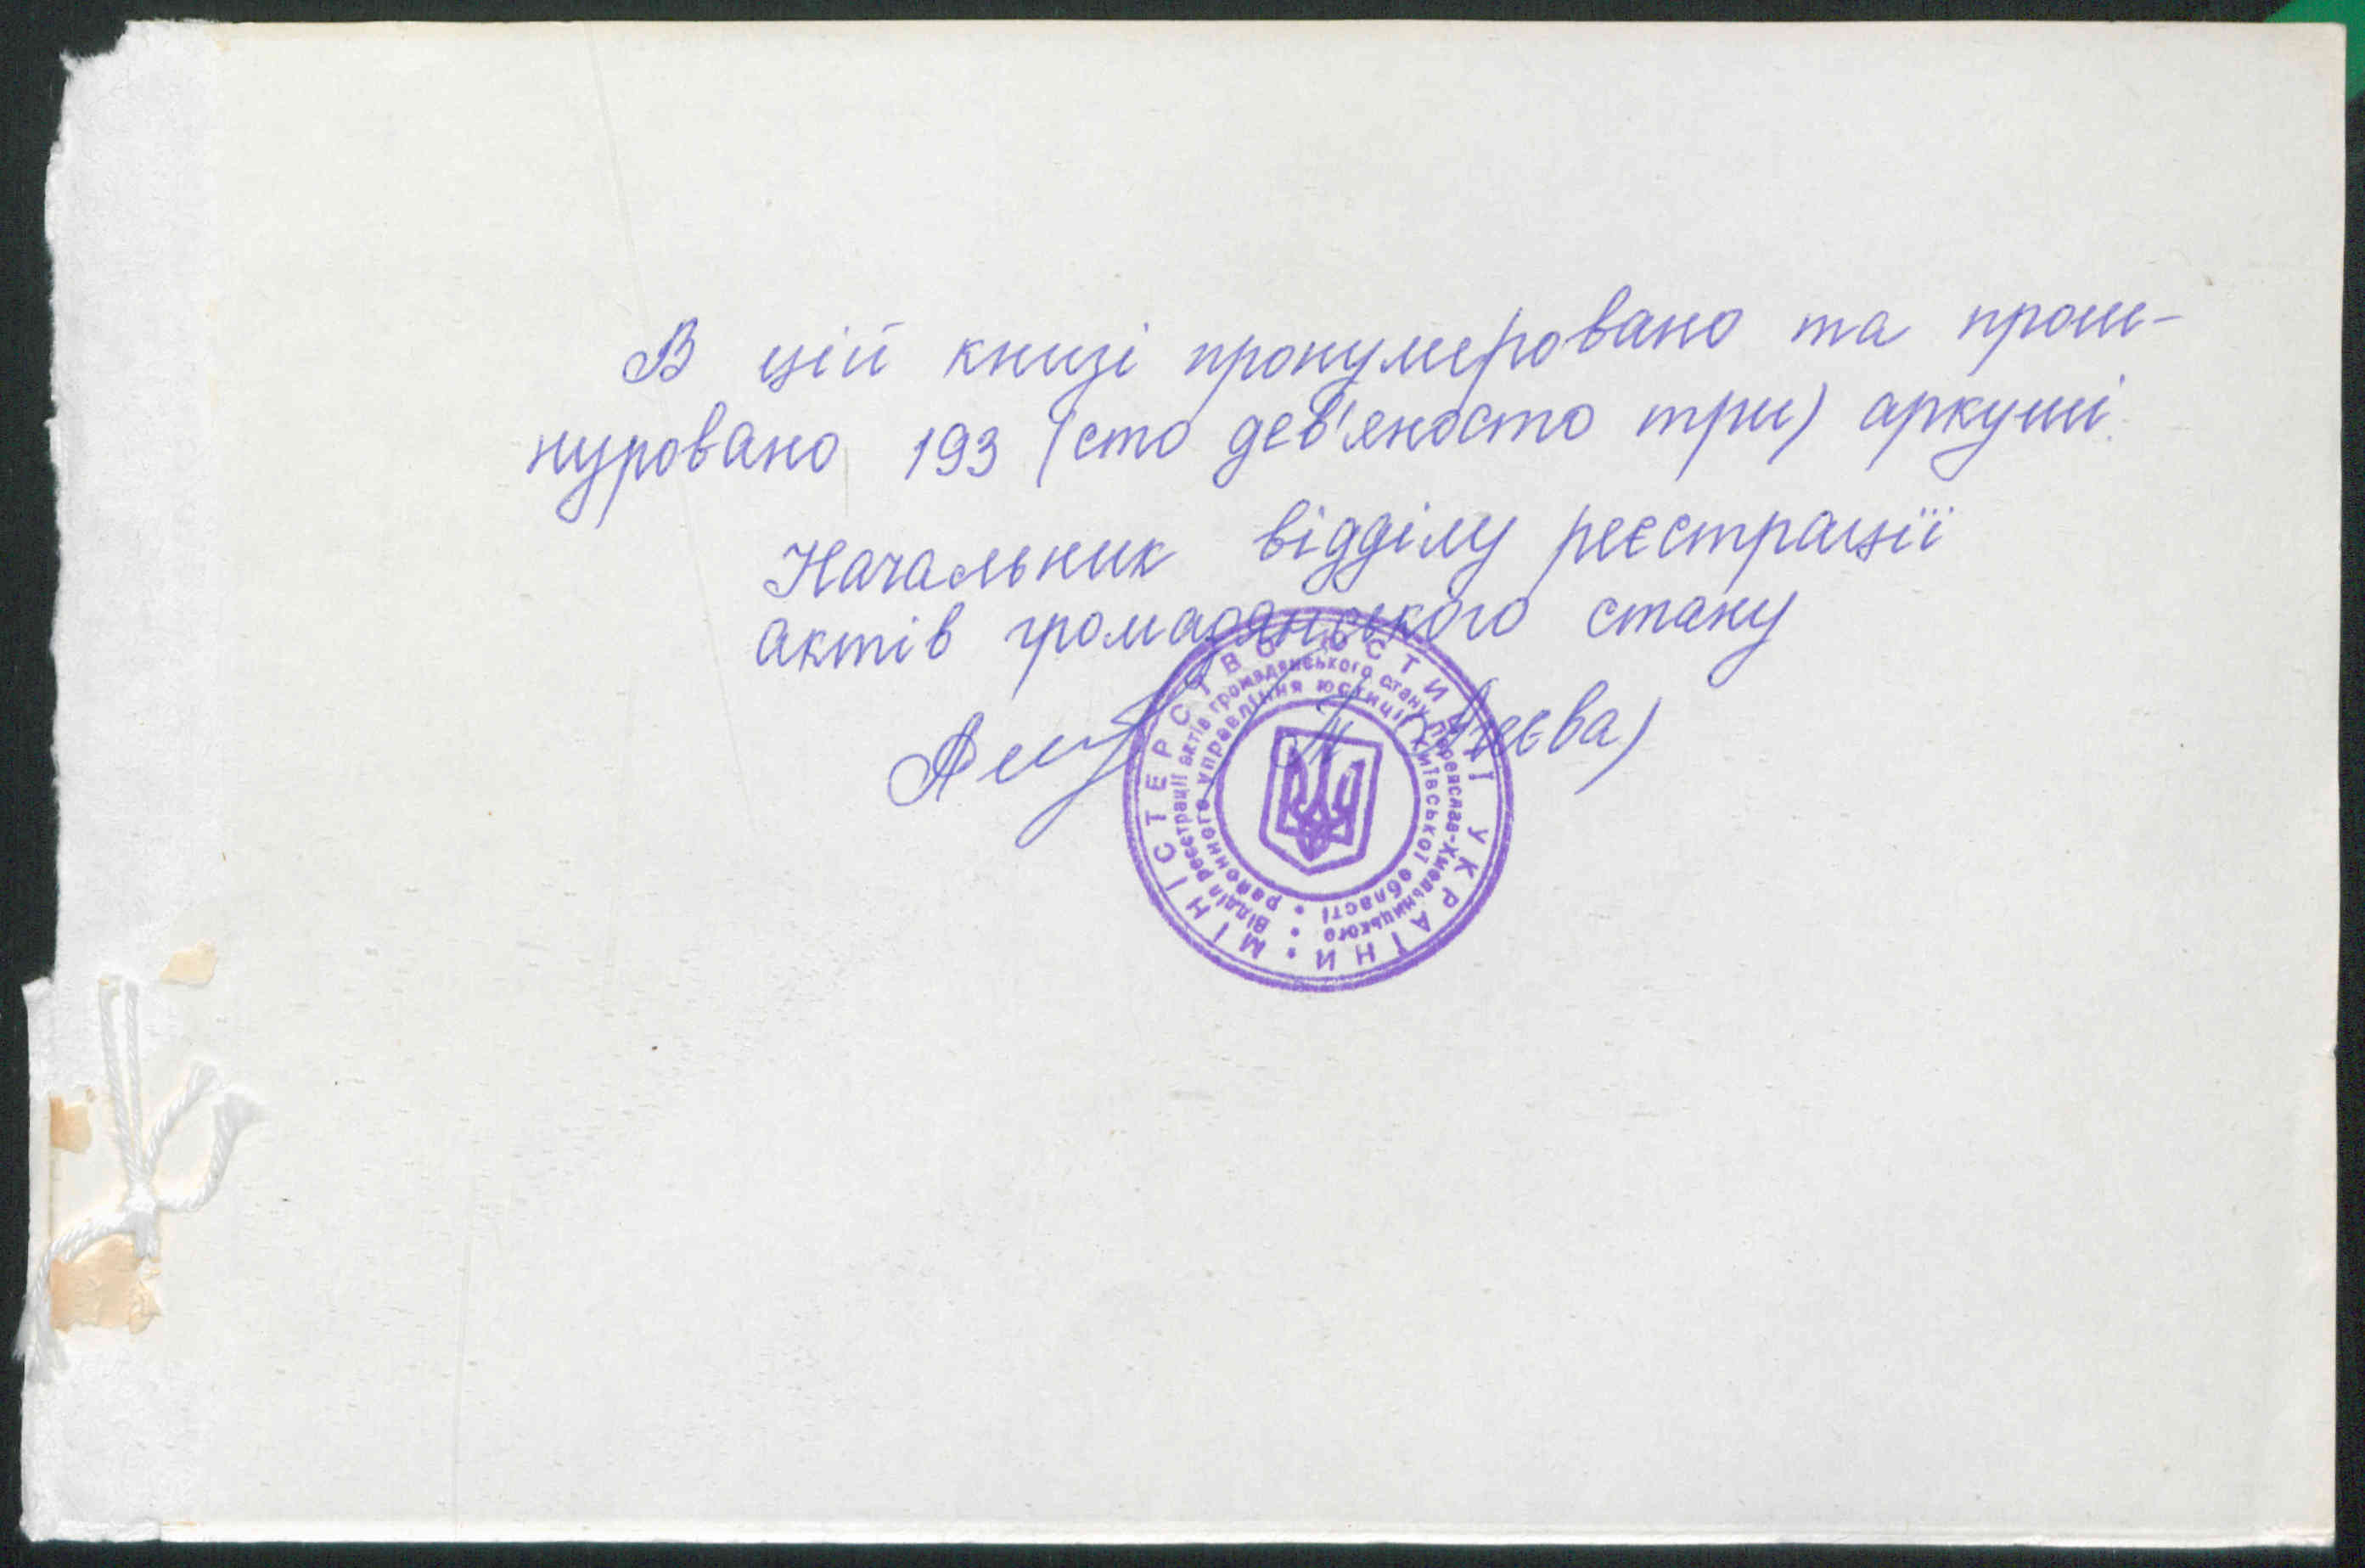 В цій книзі пронумеровано та прош-
нуровано 193 (сто дев'яносто три) аркуші.
Начальник відділу реєстрації
актів громадянського стану
МІНІСТЕРСТВО ЮСТИЦІЇ УКРАЇНИ
Відділ реєстрації актів громадянського стану Переяслав-Хмельницького
районного управління юстиції Київської області